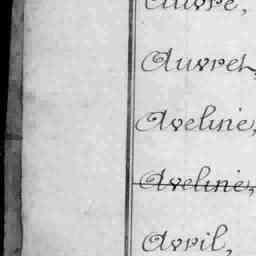 Auvré,
Auvret,
Aveline,
Aveline,
Avril,